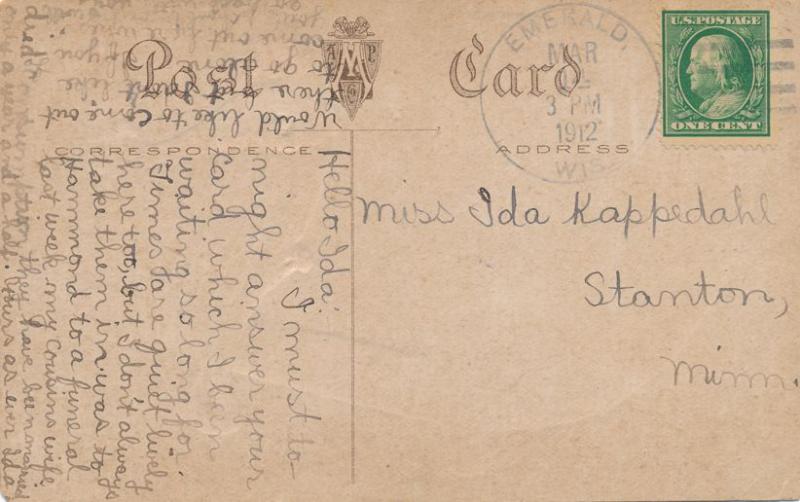 Post Card
EMERALD,
MAR
3 PM
1912
WIS.
U.S. POSTAGE
ONE CENT
CORRESPONDENCE
ADDRESS
A M P
Miss Ida Kappedahl
Stanton,
Minn.
Hello Ida:
I must to-
night answer your
card which I been
waiting so long for.
Times are quit lively
here too, but I don't always
take them in. was to
Hammond to a funeral
last week my cousins wife
died they have been married
a year and a half. Yours as ever Ida
Would like to come out
there but don't like
to go alone if you
come out